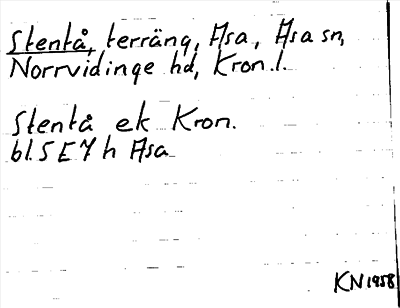 Stentå, terräng, Asa, Asa sn,
Norrvidinge hd, Kron. l.
Stentå ek Kron.
bl. 5 E 7 h Asa
KN 1958